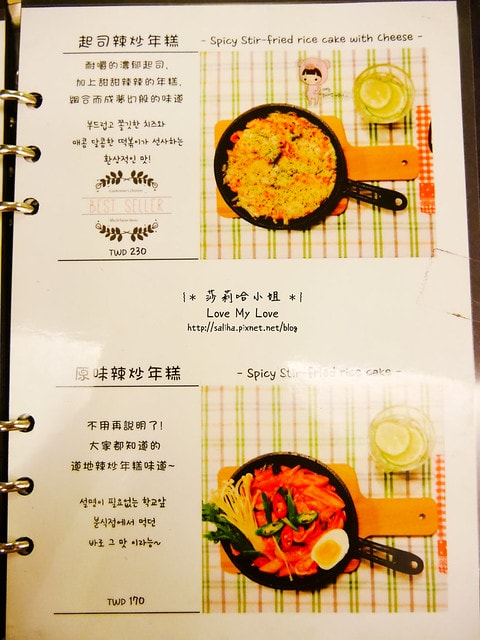 起司辣炒年糕
- Spicy Stir-fried rice cake with Cheese -
耐嚼的濃郁起司,
加上甜甜辣辣的年糕,
融合而成夢幻般的味道
부드럽고 쫄깃한 치즈와
매콤 달콤한 떡볶이가 선사하는
환상적인 맛!
BEST SELLER
TWD 230
|* 莎莉哈小姐 *|
Love My Love
http://saliha.pixnet.net/blog
原味辣炒年糕
- Spicy Stir-fried rice cake -
不用再說明了!
大家都知道的
道地辣炒年糕味道~
설명이 필요없는 학교앞
분식점에서 먹던
바로 그 맛 이라능~
TWD 170